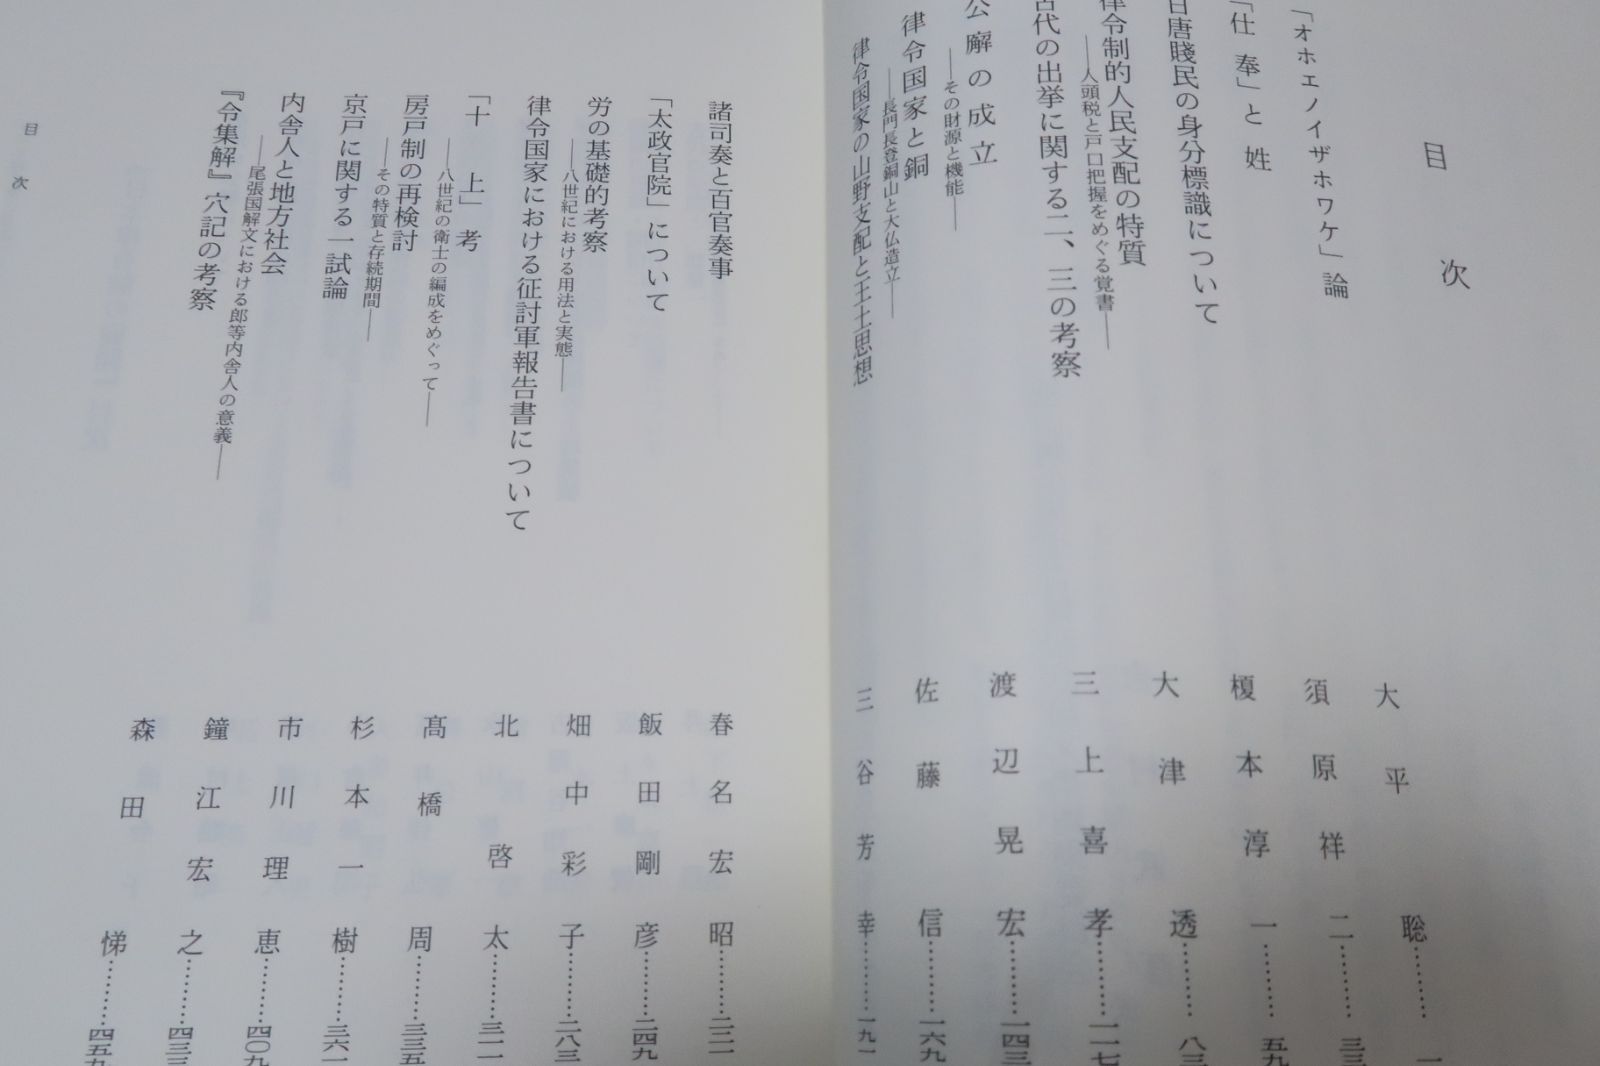 目次
「オホエノイザホワケ」論
大平聡………一
「仕奉」と姓
須原祥二………三三
日唐賤民の身分標識について
榎本淳一………五九
律令制的人民支配の特質
――人頭税と戸口把握をめぐる覚書――
大津透………八三
古代の出挙に関する二、三の考察
三上喜孝………一一七
公廨の成立
――その財源と機能――
渡辺晃宏………一四三
律令国家と銅
――長門長登銅山と大仏造立――
佐藤信………一六九
律令国家の山野支配と王土思想
三谷芳幸………一九一
諸司奏と百官奏事
春名宏昭………二二一
「太政官院」について
飯田剛彦………二四九
労の基礎的考察
――八世紀における用法と実態――
畑中彩子………二八三
律令国家における征討軍報告書について
北啓太………三一一
「十上」考
――八世紀の衛士の編成をめぐって――
髙橋周………三三五
房戸制の再検討
――その特質と存続期間――
杉本一樹………三六一
京戸に関する一試論
市川理恵………四〇九
内舎人と地方社会
――尾張国解文における郎等内舎人の意義――
鐘江宏之………四三三
『令集解』穴記の考察
森田悌………四五九
目次